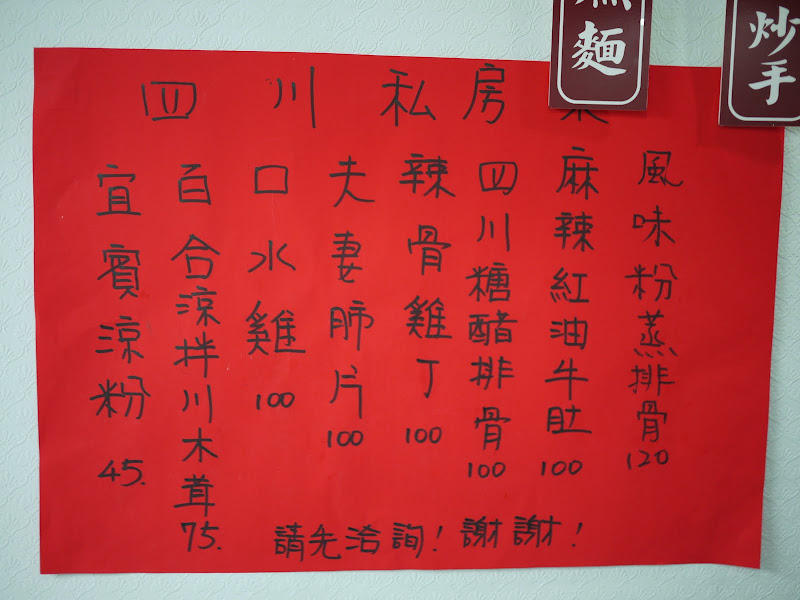 麵
炒手
四川私房
風味粉蒸排骨 120
麻辣紅油牛肚 100
四川糖醋排骨 100
辣骨雞丁 100
夫妻肺片 100
口水雞 100
百合涼拌川木茸 75.
宜賓涼粉 45.
請先洽詢！謝謝！